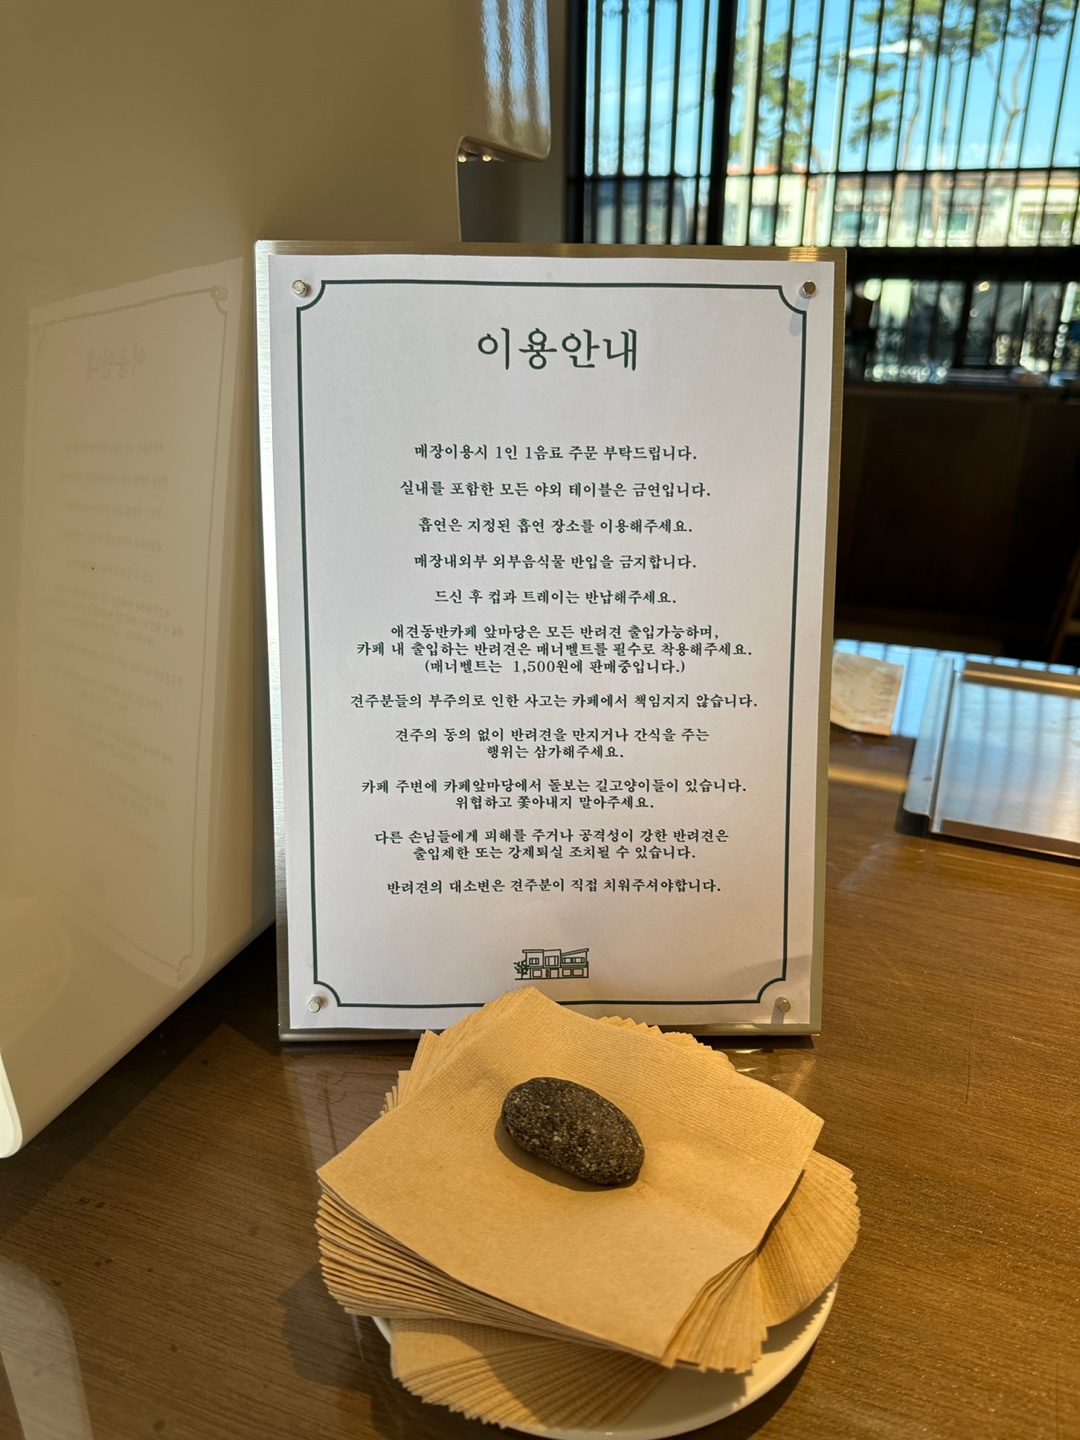 이용안내
매장이용시 1인 1음료 주문 부탁드립니다.
실내를 포함한 모든 야외 테이블은 금연입니다.
흡연은 지정된 흡연 장소를 이용해주세요.
매장내외부 외부음식물 반입을 금지합니다.
드신 후 컵과 트레이는 반납해주세요.
애견동반카페 앞마당은 모든 반려견 출입가능하며,
카페 내 출입하는 반려견은 매너벨트를 필수로 착용해주세요.
(매너벨트는 1,500원에 판매중입니다.)
견주분들의 부주의로 인한 사고는 카페에서 책임지지 않습니다.
견주의 동의 없이 반려견을 만지거나 간식을 주는
행위는 삼가해주세요.
카페 주변에 카페앞마당에서 돌보는 길고양이들이 있습니다.
위협하고 쫓아내지 말아주세요.
다른 손님들에게 피해를 주거나 공격성이 강한 반려견은
출입제한 또는 강제퇴실 조치될 수 있습니다.
반려견의 대소변은 견주분이 직접 치워주셔야합니다.